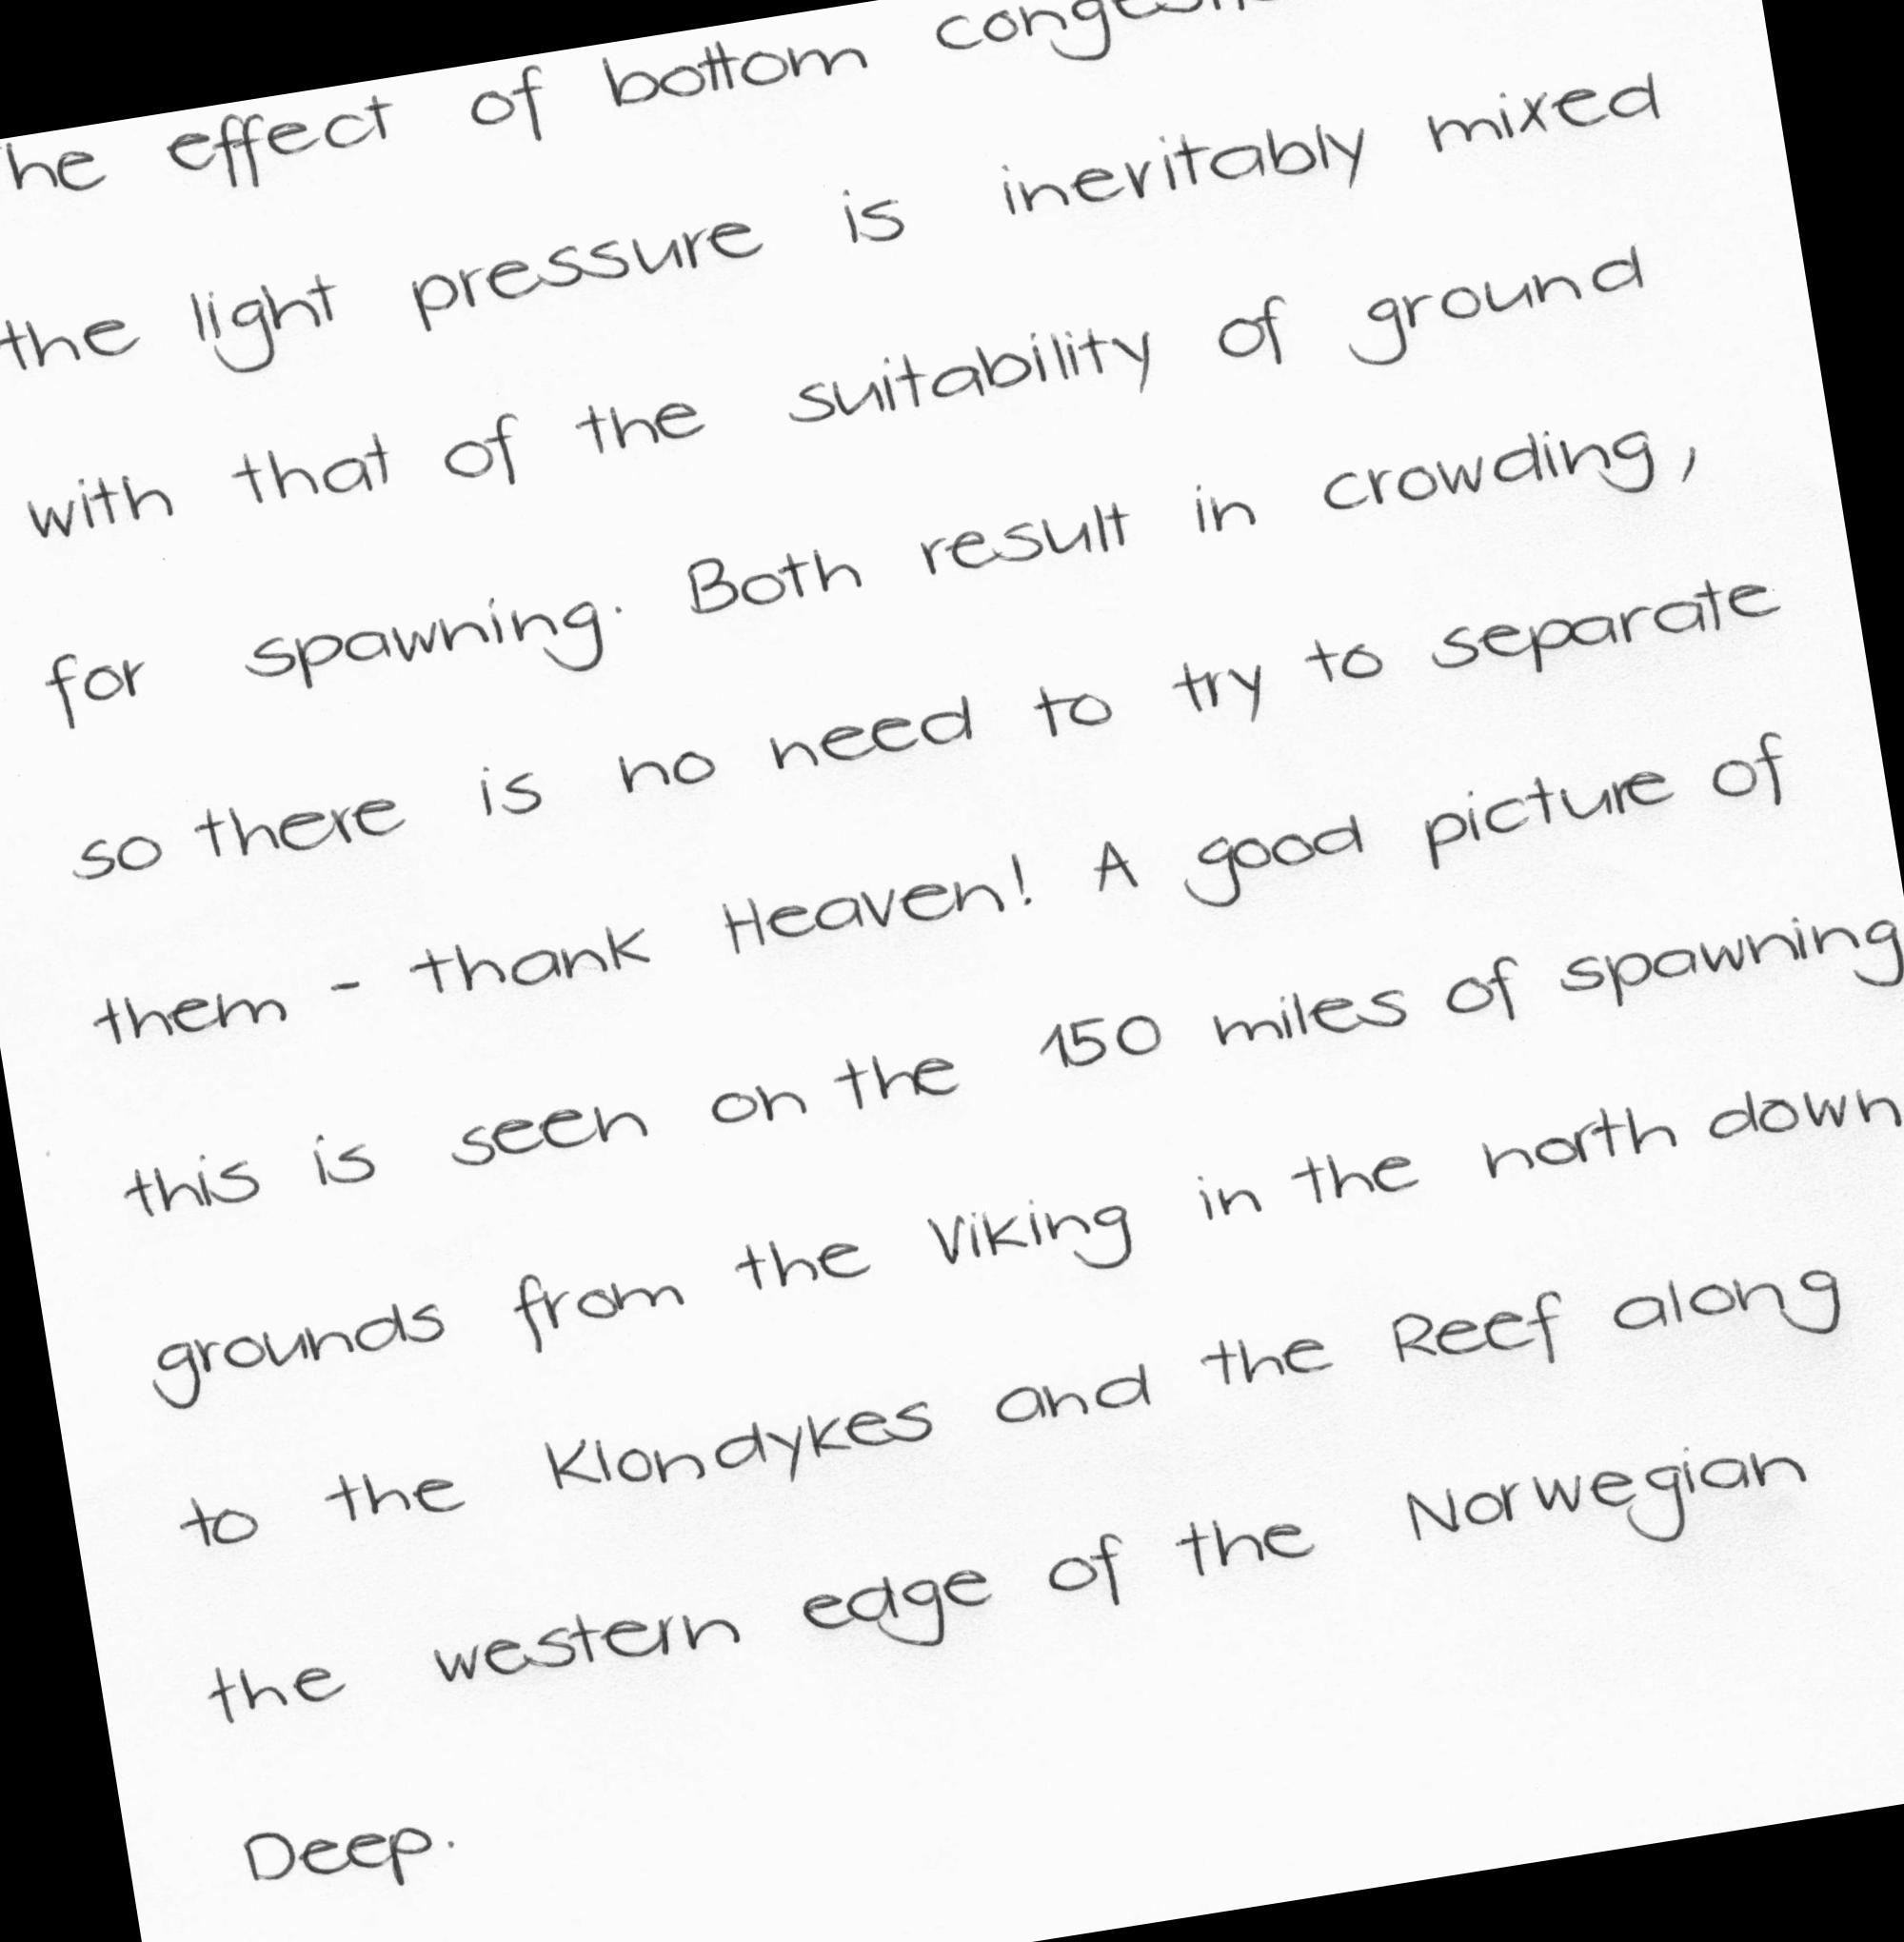 he effect of bottom
the light pressure is ineritably mixed
with that of the suitability of ground
for spawning. Both result in crowding,
so there is no need to try to separate
them - thank Heaven! A good picture of
this is seen on the 150 miles of spawning
grounds from the Viking in the north down
to the Klondykes and the Reef along
the western edge of the Norwegian
Deep.